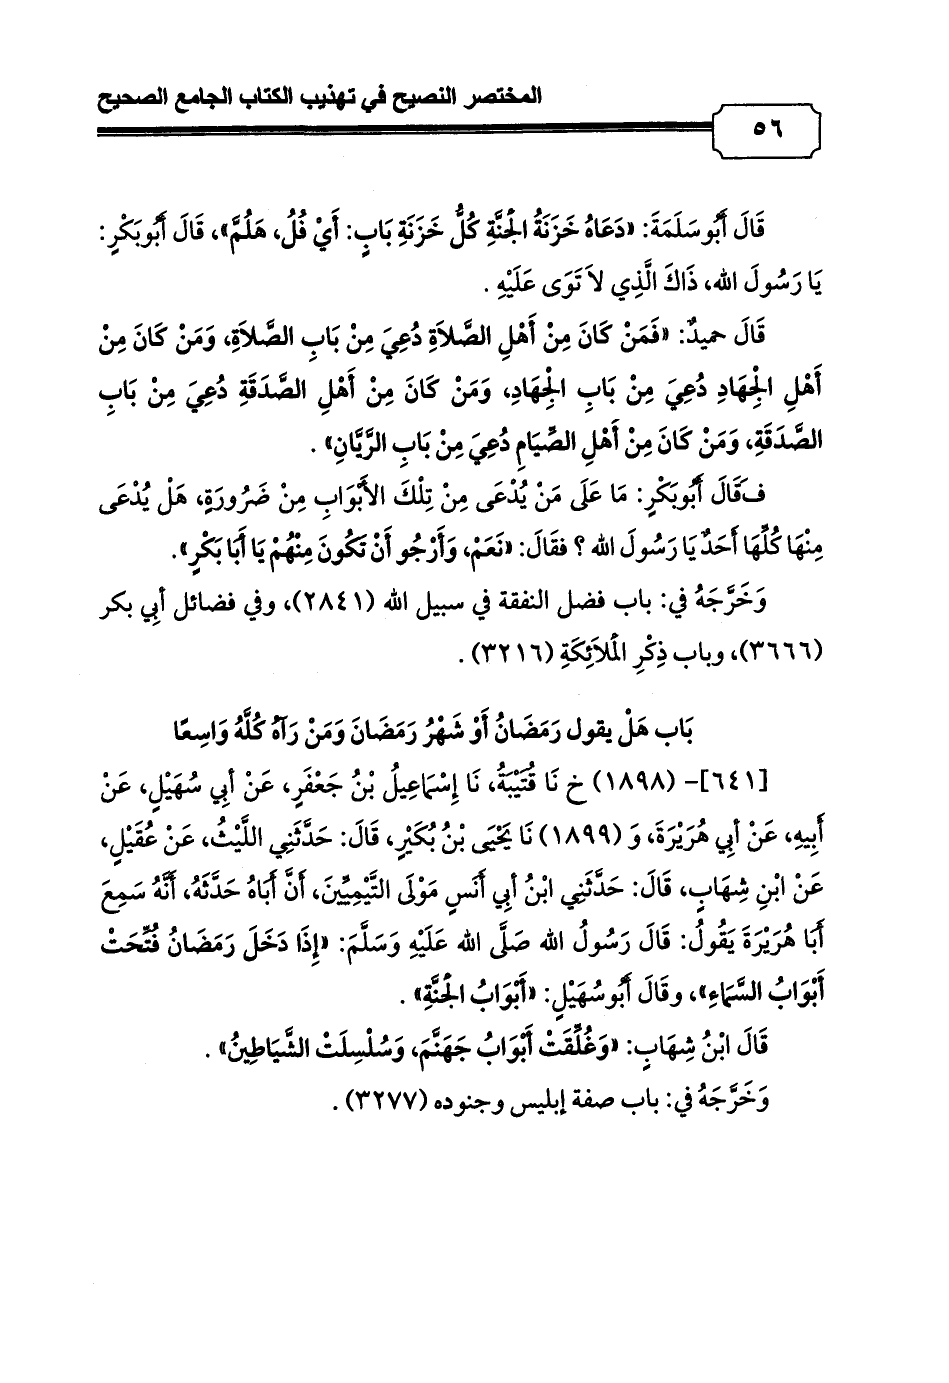 المختصر النصيح في تهذيب الكتاب الجامع الصحيح
٥٦
قَالَ أَبُو سَلَمَةَ: «دَعَاهُ خَزَنَةُ الجَنَّةِ كُلُّ خَزَنَةِ بَابٍ: أَيْ فُلُ، هَلُمَّ»، قَالَ أَبُوبَكْرٍ:
يَا رَسُولَ الله، ذَاكَ الَّذِي لاَ تَوَى عَلَيْهِ .
قَالَ حميدٌ: «فَمَنْ كَانَ مِنْ أَهْلِ الصَّلاَةِ دُعِيَ مِنْ بَابِ الصَّلاَةِ، وَمَنْ كَانَ مِنْ
أَهْلِ الجِهَادِ دُعِيَ مِنْ بَابِ الجِهَادِ، وَمَنْ كَانَ مِنْ أَهْلِ الصَّدَقَةِ دُعِيَ مِنْ بَابِ
الصَّدَقَةِ، وَمَنْ كَانَ مِنْ أَهْلِ الصِّيَامِ دُعِيَ مِنْ بَابِ الرَّيَّانِ» .
فَقَالَ أَبُوبَكْرٍ: مَا عَلَى مَنْ يُدْعَى مِنْ تِلْكَ الأَبْوَابِ مِنْ ضَرُورَةٍ، هَلْ يُدْعَى
مِنْهَا كُلِّهَا أَحَدٌ يَا رَسُولَ الله ؟ فقَالَ: «نَعَمْ، وَأَرْجُو أَنْ تَكُونَ مِنْهُمْ يَا أَبَا بَكْرٍ».
وَخَرَّجَهُ فِي: باب فضل النفقة في سبيل الله (٢٨٤١)، وفي فضائل أبي بكر
(٣٦٦٦)، وباب ذِكْرِ المَلاَئِكَةِ (٣٢١٦) .
بَاب هَلْ يقول رَمَضَانُ أَوْ شَهْرُ رَمَضَانَ وَمَنْ رَآهُ كُلَّهُ وَاسِعًا
[٦٤١]- (١٨٩٨) خ نَا قُتَيْبَةُ، نَا إِسْمَاعِيلُ بْنُ جَعْفَرٍ، عَنْ أبي سُهَيْلٍ، عَنْ
أَبِيهِ، عَنْ أبي هُرَيْرَةَ، وَ (١٨٩٩) نَا يَحْيَى بْنُ بُكَيْرٍ، قَالَ: حَدَّثَنِي اللَّيْثُ، عَنْ عُقَيْلٍ،
عَنْ ابْنِ شِهَابٍ، قَالَ: حَدَّثَنِي ابْنُ أبي أَنَسٍ مَوْلَى التَّيْمِيِّينَ، أَنَّ أَبَاهُ حَدَّثَهُ، أَنَّهُ سَمِعَ
أَبَا هُرَيْرَةَ يَقُولُ: قَالَ رَسُولُ الله صَلَّى الله عَلَيْهِ وَسَلَّمَ: «إِذَا دَخَلَ رَمَضَانُ فُتِّحَتْ
أَبْوَابُ السَّمَاءِ»، وقَالَ أَبُو سُهَيْلٍ: «أَبْوَابُ الجَنَّةِ» .
قَالَ ابْنُ شِهَابٍ: «وَغُلِّقَتْ أَبْوَابُ جَهَنَّمَ، وَسُلْسِلَتْ الشَّيَاطِينُ» .
وَخَرَّجَهُ فِي: باب صفة إبليس وجنوده (٣٢٧٧) .